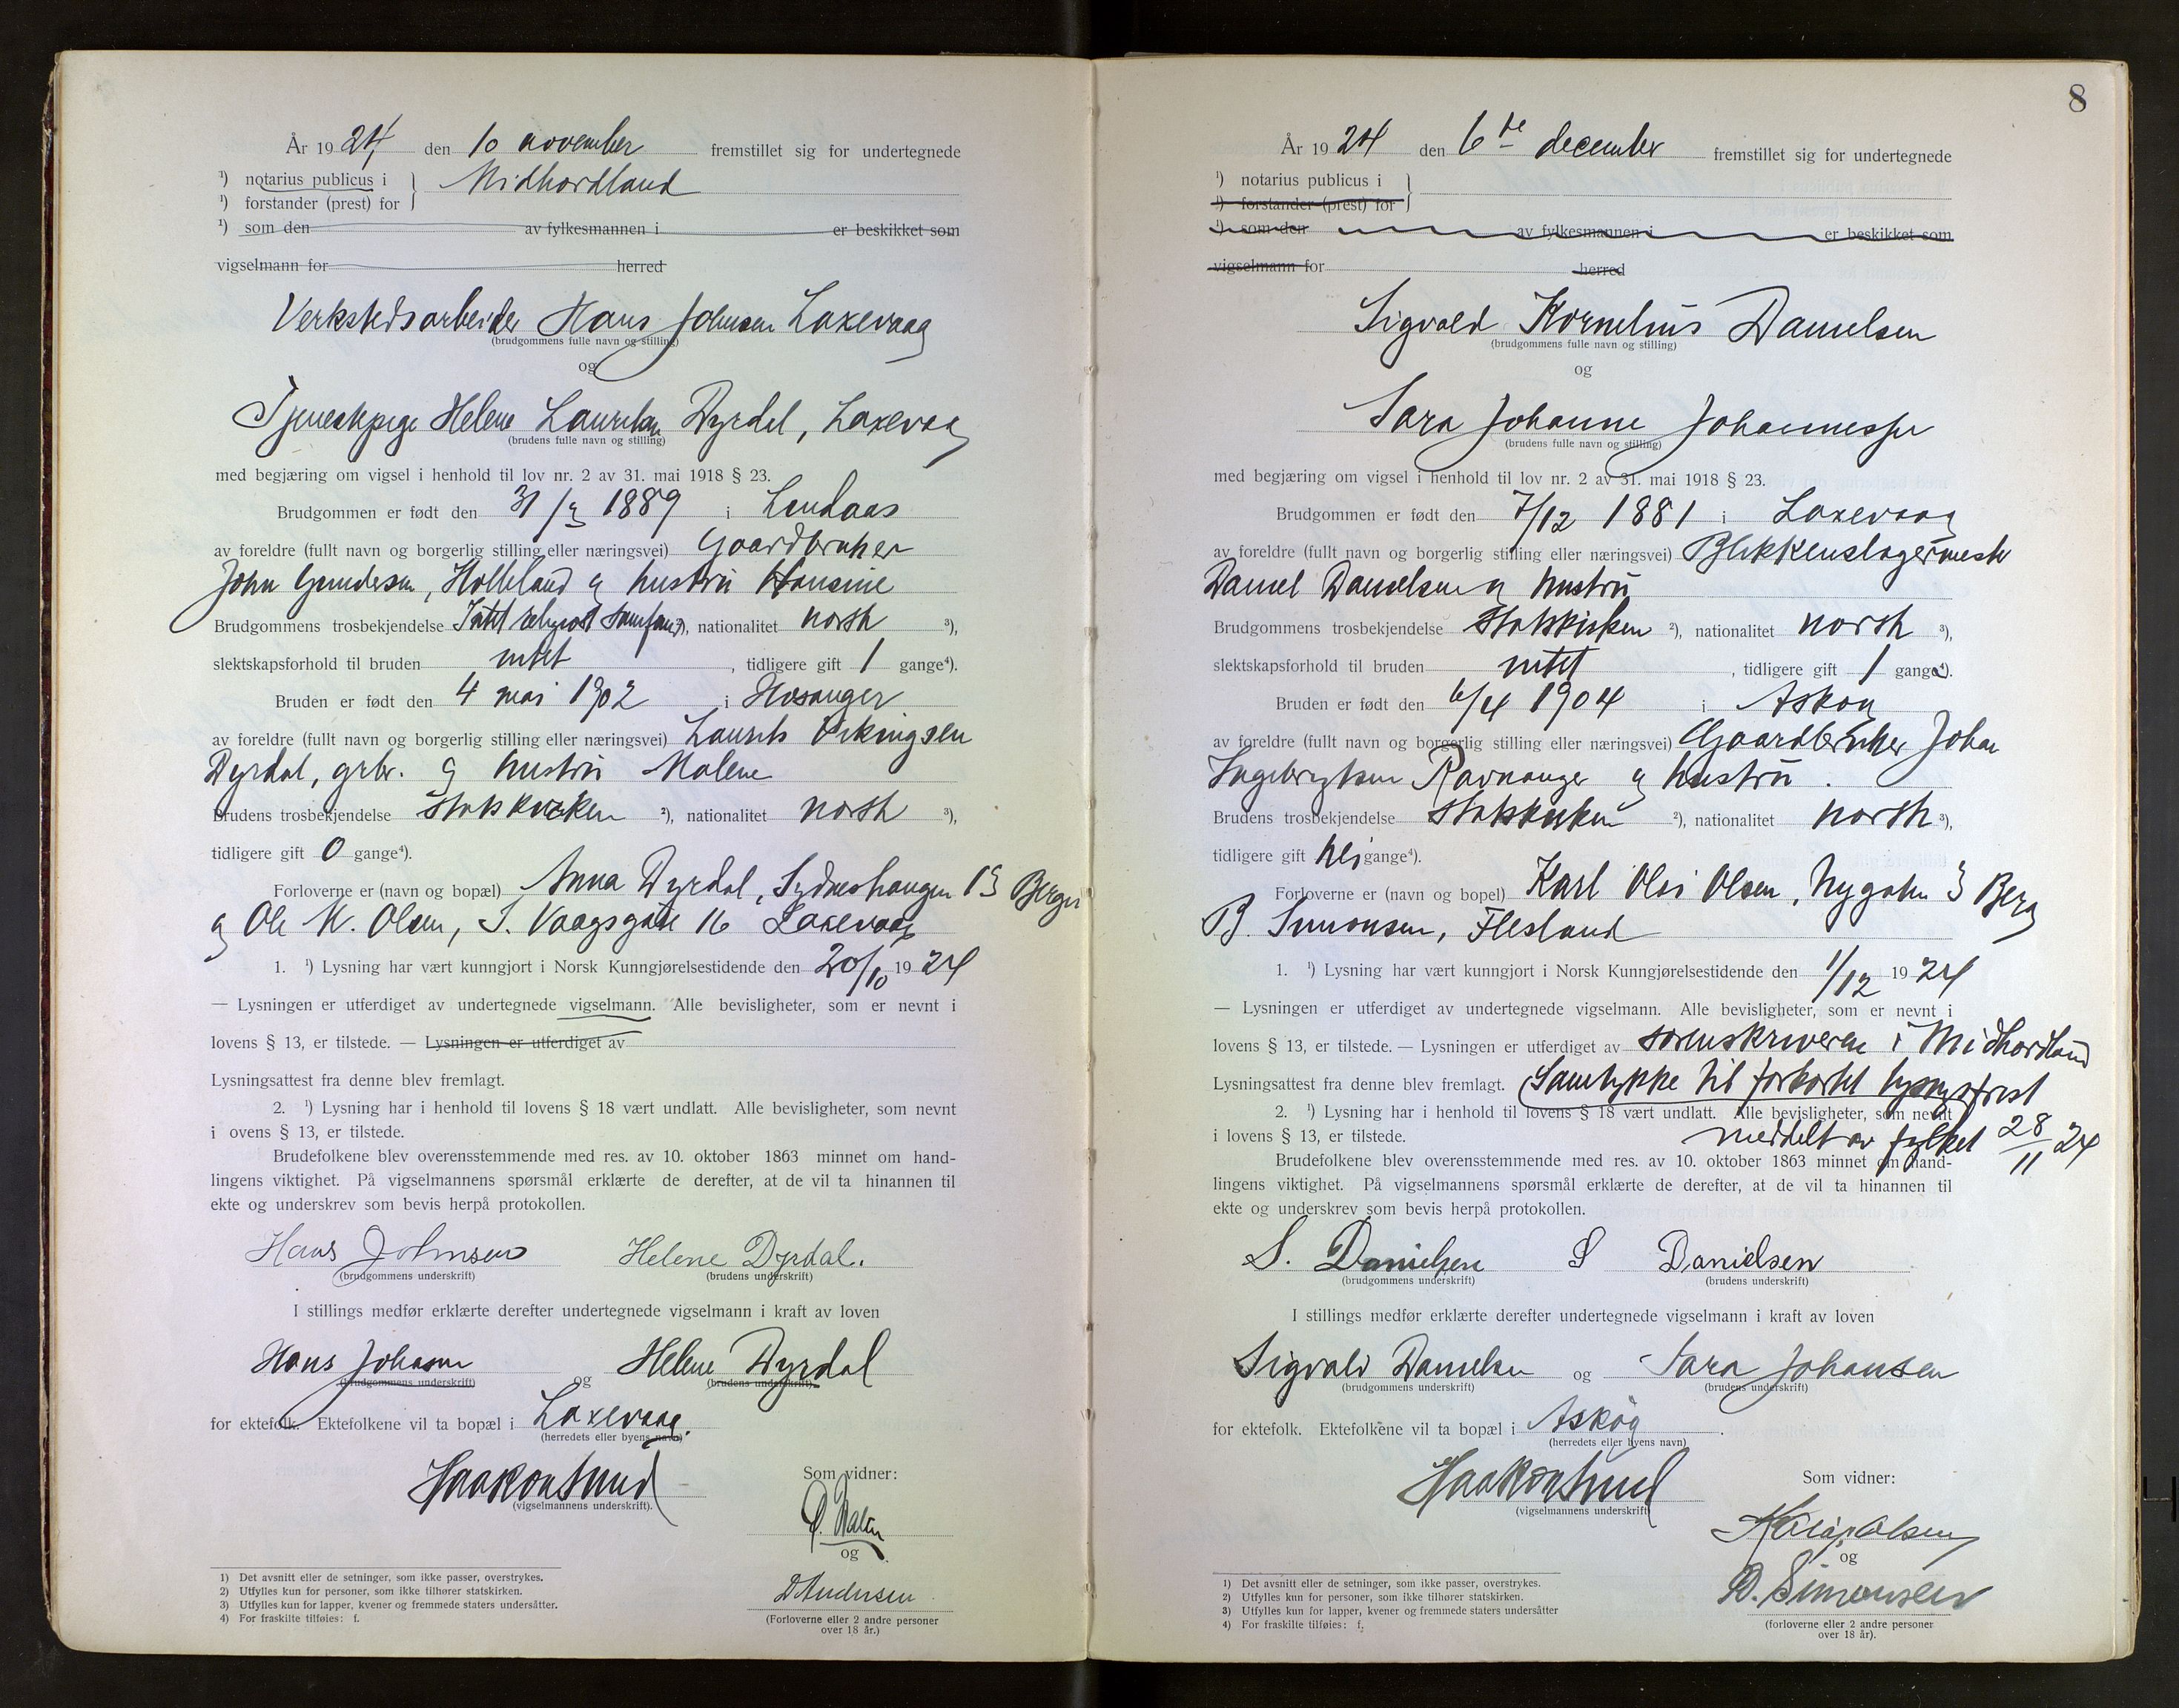 År 1924, den 10 november fremstillet sig for undertegnede
¹) notarius publicus i } Midhordland
¹) forstander (prest) for
¹) som den av fylkesmannen i er beskikket som
vigselmann for herred
Verkstedsarbeider Hans Johnsen Laxevaag
(brudgommens fulle navn og stilling)
og
Tjenestepige Helene Lauritsen Dyrdal, Laxevaag
(brudens fulle navn og stilling)
med begjæring om vigsel i henhold til lov nr. 2 av 31. mai 1918 § 23.
Brudgommen er født den 31/3 1889 i Lindaas
av foreldre (fullt navn og borgerlig stilling eller næringsvei) Gaardbruker
John Gundersen, Helleland og hustru Hansine
Brudgommens trosbekjendelse Intet religiøst samfund ²), nationalitet norsk ³),
slektskapsforhold til bruden intet, tidligere gift 1 gange⁴).
Bruden er født den 4 mai 1902 i Hosanger
av foreldre (fullt navn og borgerlig stilling eller næringsvei) Laurits Vikingsen
Dyrdal, grbr. og hustru Malene
Brudens trosbekjendelse Statskirken ²), nationalitet norsk ³),
tidligere gift 0 gange⁴).
Forloverne er (navn og bopæl) Anna Dyrdal, Sydneshaugen 13 Bergen
og Ole K. Olsen, S. Vaagsgate 16 Laxevaag
1. ¹) Lysning har vært kunngjort i Norsk Kunngjørelsestidende den 20/10 1924
— Lysningen er utferdiget av undertegnede vigselmann. Alle bevisligheter, som er nevnt i
lovens § 13, er tilstede. — Lysningen er utferdiget av
Lysningsattest fra denne blev fremlagt.
2. ¹) Lysning har i henhold til lovens § 18 vært undlatt. Alle bevisligheter, som nevnt
i ovens § 13, er tilstede.
Brudefolkene blev overensstemmende med res. av 10. oktober 1863 minnet om hand-
lingens viktighet. På vigselmannens spørsmål erklærte de derefter, at de vil ta hinannen til
ekte og underskrev som bevis herpå protokollen.
Hans Johnsen Helene Dyrdal.
(brudgommens underskrift) (brudens underskrift)
I stillings medfør erklærte derefter undertegnede vigselmann i kraft av loven
Hans Johnsen og Helene Dyrdal
(brudgommens underskrift) (brudens underskrift)
for ektefolk. Ektefolkene vil ta bopæl i Laxevaag.
(herredets eller byens navn)
Haakon Sund
(vigselmannens underskrift).
Som vidner:
og
D Andersen
(Forloverne eller 2 andre personer
over 18 år.)
1) Det avsnitt eller de setninger, som ikke passer, overstrykes.
2) Utfylles kun for personer, som ikke tilhører statskirken.
3) Utfylles kun for lapper, kvener og fremmede staters undersåtter.
4) For fraskilte tilføies: f.
8
År 1924 den 6te december fremstillet sig for undertegnede
¹) notarius publicus i }
¹) forstander (prest) for
¹) som den av fylkesmannen i er beskikket som
vigselmann for herred
Sigvald Kornelius Danielsen
(brudgommens fulle navn og stilling)
og
Sara Johanne Johannesen
(brudens fulle navn og stilling)
med begjæring om vigsel i henhold til lov nr. 2 av 31. mai 1918 § 23.
Brudgommen er født den 7/12 1881 i Laxevaag
av foreldre (fullt navn og borgerlig stilling eller næringsvei) Blikkenslagermester
Daniel Danielsen og hustru
Brudgommens trosbekjendelse Statskirken ²), nationalitet norsk ³),
slektskapsforhold til bruden intet, tidligere gift 1 gange⁴).
Bruden er født den 6/4 1904 i Askøy
av foreldre (fullt navn og borgerlig stilling eller næringsvei) Gaardbruker Johan
Ingebrigtsen Ravnanger og hustru.
Brudens trosbekjendelse Statskirken ²), nationalitet norsk ³),
tidligere gift nei gange⁴).
Forloverne er (navn og bopel) Karl Olai Olsen, Nygaten 3 Berg
B. Simonsen, Flesland
1. ¹) Lysning har vært kunngjort i Norsk Kunngjørelsestidende den 1/12 1924
— Lysningen er utferdiget av undertegnede vigselmann. Alle bevisligheter, som er nevnt i
lovens § 13, er tilstede. — Lysningen er utferdiget av sorenskriveren i Midhordland
Lysningsattest fra denne blev fremlagt. Samtykke til forkortet lysningsfrist
2. ¹) Lysning har i henhold til lovens § 18 vært undlatt. Alle bevisligheter, som nevnt
i lovens § 13, er tilstede. meddelt av fylket 28/11 24
Brudefolkene blev overensstemmende med res. av 10. oktober 1863 minnet om hand-
lingens viktighet. På vigselmannens spørsmål erklærte de derefter, at de vil ta hinannen til
ekte og underskrev som bevis herpå protokollen.
S. Danielsen S Danielsen
(brudgommens underskrift) (brudens underskrift)
I stillings medfør erklærte derefter undertegnede vigselmann i kraft av loven
Sigvald Danielsen og Sara Johansen
(brudgommens underskrift) (brudens underskrift)
for ektefolk. Ektefolkene vil ta bopæl i Askøy.
(herredets eller byens navn)
Haakon Sund
(vigselmannens underskrift)
Som vidner:
K Olai Olsen
og
B. Simonsen
(forloverne eller 2 andre personer
over 18 år).
1) Det avsnitt eller de setninger, som ikke passer, overstrykes.
2) Utfylles kun for personer, som ikke tilhører statskirken.
3) Utfylles kun for lapper, kvener og fremmede staters undersåtter
4) For fraskilte tilføies: f.